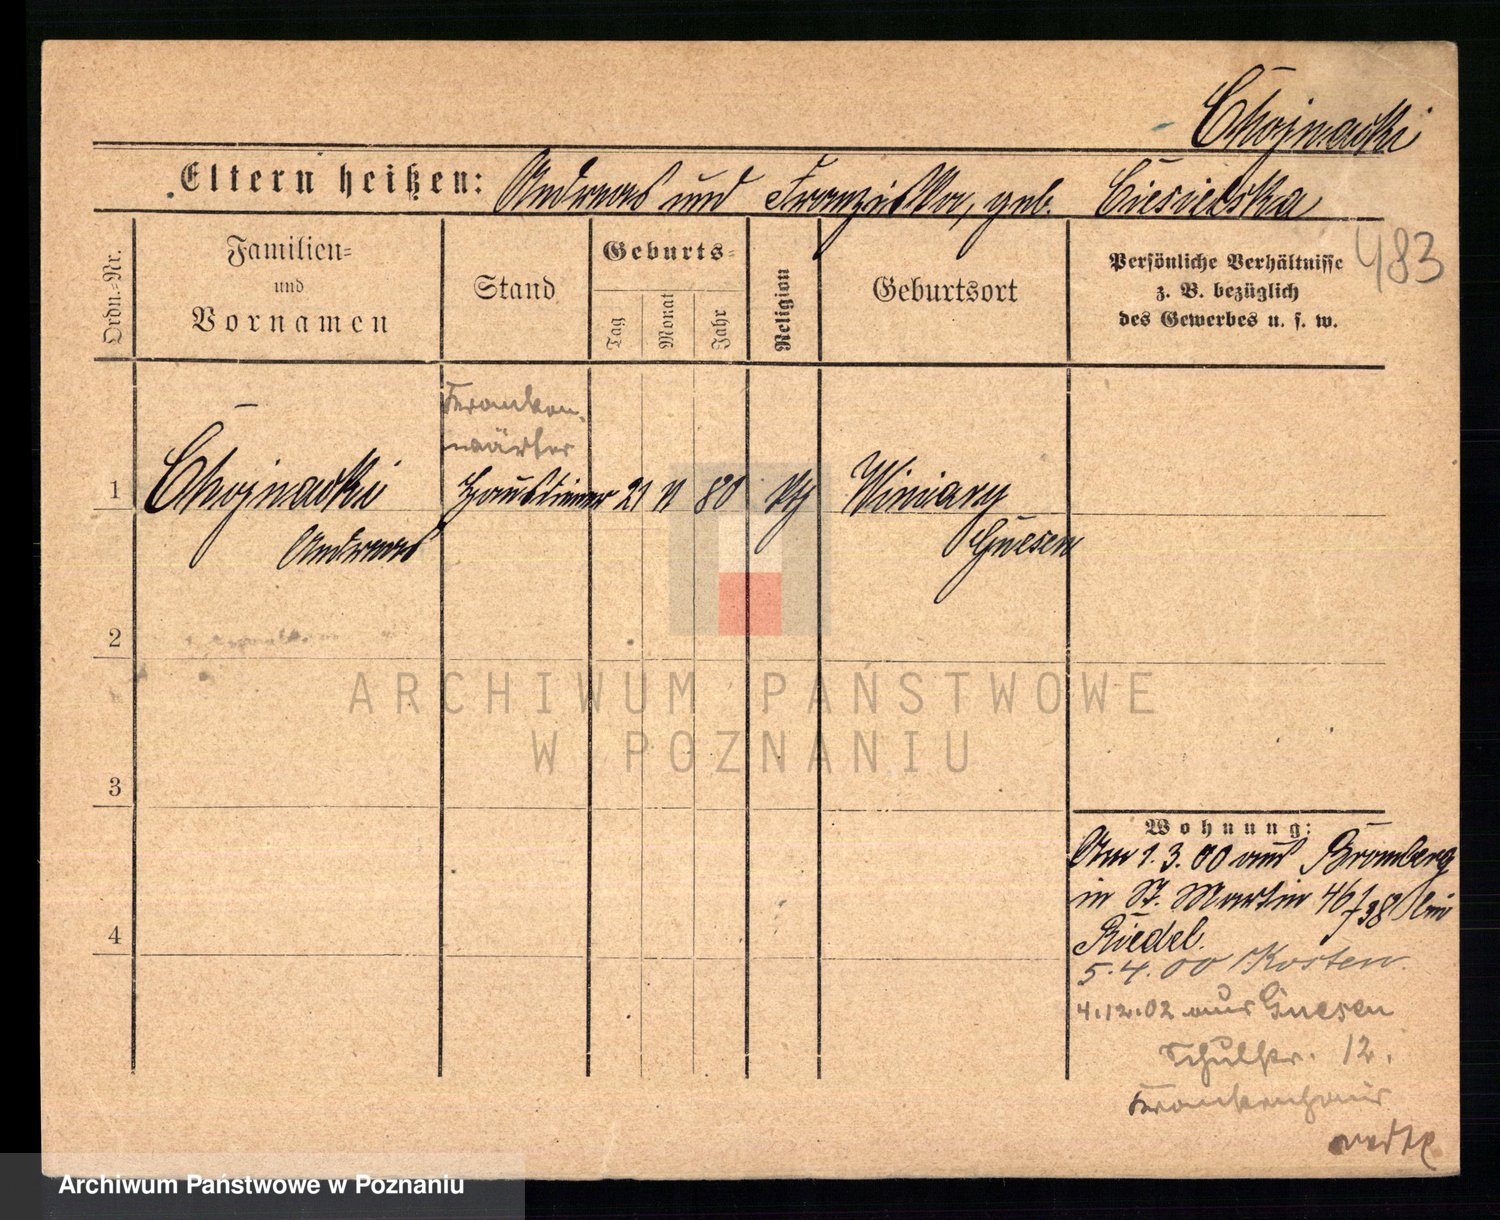 Chojnacki
Eltern heißen: Andreas und Franziska, geb. Ciesielska
483
Ordn.=Nr.
Familien=
und
Vornamen
Stand
Geburts=
Tag
Monat
Jahr
Religion
Geburtsort
Persönliche Verhältnisse
z. B. bezüglich
des Gewerbes u. s. w.
Kranken
wärter
1 Chojnacki Hausdiener 21 11 80 kth Winiary
Andreas Gnesen
2
3
4
Wohnung:
Am 1. 3. 00 aus Bromberg
in St. Martin 46/ bei
Riedel.
5. 4. 00 Kosten.
4.12.02 aus Gnesen
Schulstr. 12.
Krankenhaus
ARCHIWUM PAŃSTWOWE
W POZNANIU
Archiwum Państwowe w Poznaniu